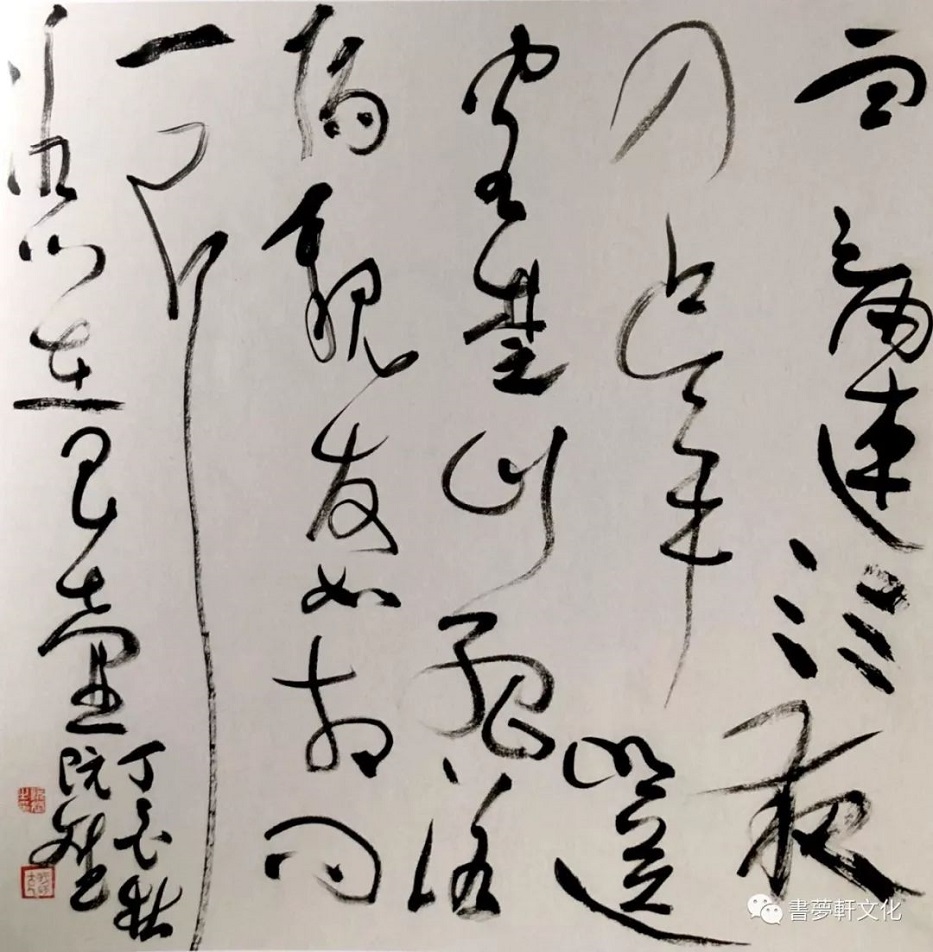 寒雨連江夜
入吴平明送
客楚山孤洛
陽親友如相問
一片
冰心在玉壺
丁酉秋
書夢軒文化